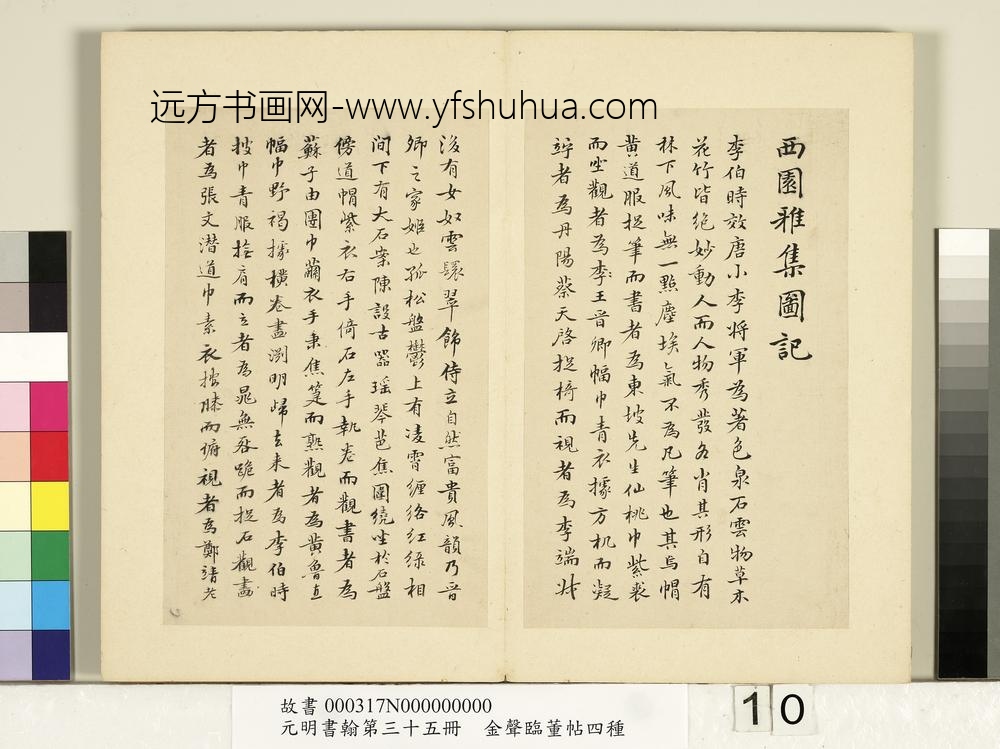 远方书画网-www.yfshuhua.com
西園雅集圖記
李伯時效唐小李將軍為著色泉石雲物草木
花竹皆絕妙動人而人物秀發各肖其形自有
林下風味無一點塵埃氣不為凡筆也其烏帽
黃道服捉筆而書者為東坡先生仙桃巾紫裘
而坐觀者為李王晉卿幅巾青衣據方机而凝
竚者為丹陽蔡天啓捉椅而視者為李端叔
後有女奴雲鬟翠飾侍立自然富貴風韻乃晉
卿之家姬也孤松盤鬱上有凌霄纏絡紅綠相
間下有大石案陳設古器瑤琴芭焦圍繞坐於石盤
傍道帽紫衣右手倚石左手執卷而觀書者為
蘇子由團巾繭衣手秉焦箑而熟觀者為黃魯直
幅巾野褐據橫卷畫淵明歸去来者為李伯時
披巾青服撫肩而立者為晁無咎跪而捉石觀畫
者為張文潛道巾素衣按膝而俯視者為鄭靖老
故書 000317N000000000
元明書翰第三十五冊 金聲臨董帖四種
10